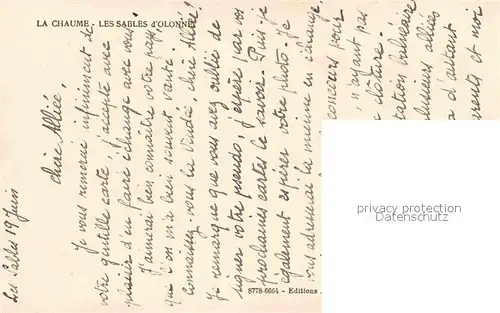 LA CHAUME - LES SABLES d'OLONNE
Les Sables 19 Juin
Chère Alliée,
Je vous remercie infiniment de
votre gentille carte, j'accepte avec
plaisir d'en faire échange avec vous.
J'aimerai bien connaître votre pays,
que l'on m'a bien souvent vanté.
Connaissez-vous la Vendée, chère Alliée?
Je remarque que vous avez oublié de
signer votre pseudo, j'espère par vos
prochaines cartes le savoir. Puis-je
également espérer votre photo. Je
vous adresserai la mienne en échange
concours pour
n'ayant pas
clôture.
station balnéaire
plusieurs alliées
d'autant
parents et moi
8778-6664 - Editions
privacy protection
Datenschutz